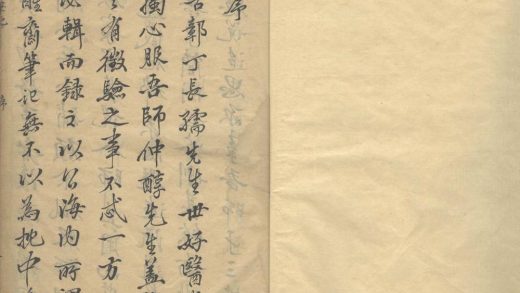 序
吾鄣丁長孺先生世好醫
心服吾師仲醇先生蓋
有徵驗之事不忒一方
必輯而錄之以公海內所謂
醒齋筆記無不以為枕中
序